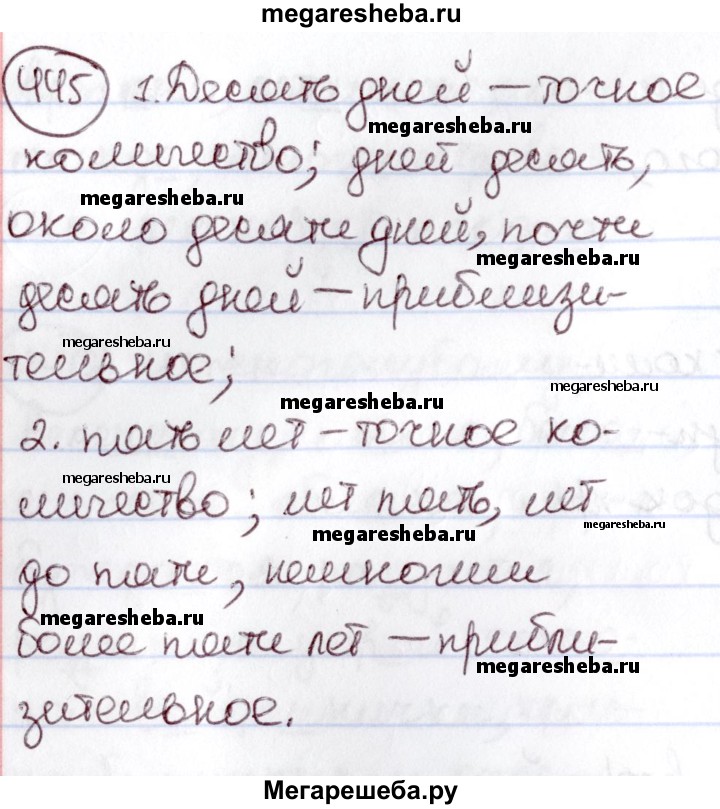 megaresheba.ru
445 1. Десять дней — точное
megaresheba.ru
количество; дней десять,
megaresheba.ru
около десяти дней, почти
megaresheba.ru
десять дней — приблизи-
megaresheba.ru
тельное;
megaresheba.ru
megaresheba.ru
2. пять лет — точное ко-
megaresheba.ru
личество; лет пять, лет
megaresheba.ru
megaresheba.ru
до пяти, немногим
megaresheba.ru
более пяти лет — прибли-
megaresheba.ru
зительное.
megaresheba.ru
Мегарешеба.ру